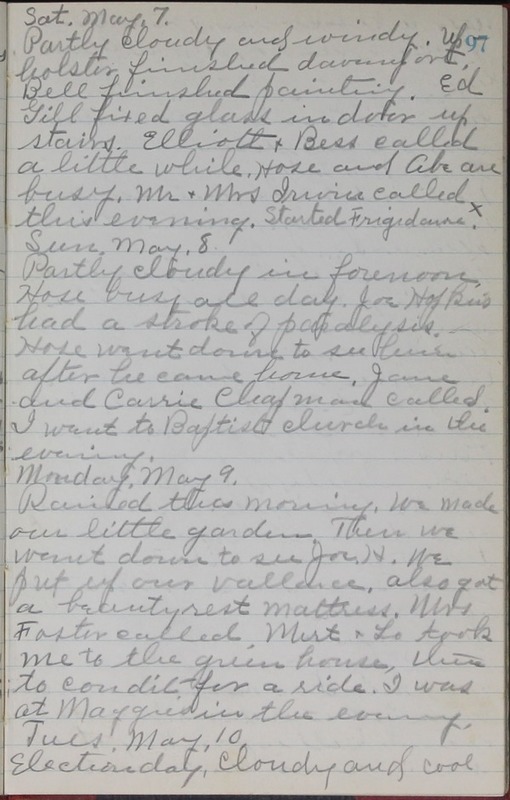 Sat. May. 7.
97
Partly cloudy and windy. Up
holster finished davenport.
Bell finished painting. Ed
Gill fixed glass in door up
stairs. Elliott & Bess called
a little while. Hose and Abe are
busy. Mr & Mrs Irvin called
this evening. Started Frigidaire. x
Sun. May. 8.
Partly cloudy in forenoon.
Hose busy all day. Joe Hopkins
had a stroke of paralysis.
Hose went down to see him
after he came home. Jane
and Carrie Chapman called.
I went to Baptist church in the
evening.
Monday, May 9.
Rained this morning. We made
our little garden. Then we
went down to see Joe. H. We
put up our vallance, also got
a beautyrest mattress. Mrs
Foster called Mert & Lo took
me to the green house, then
to condit for a ride. I was
at Maggies in the evening.
Tues. May. 10
Election day, Cloudy and cool